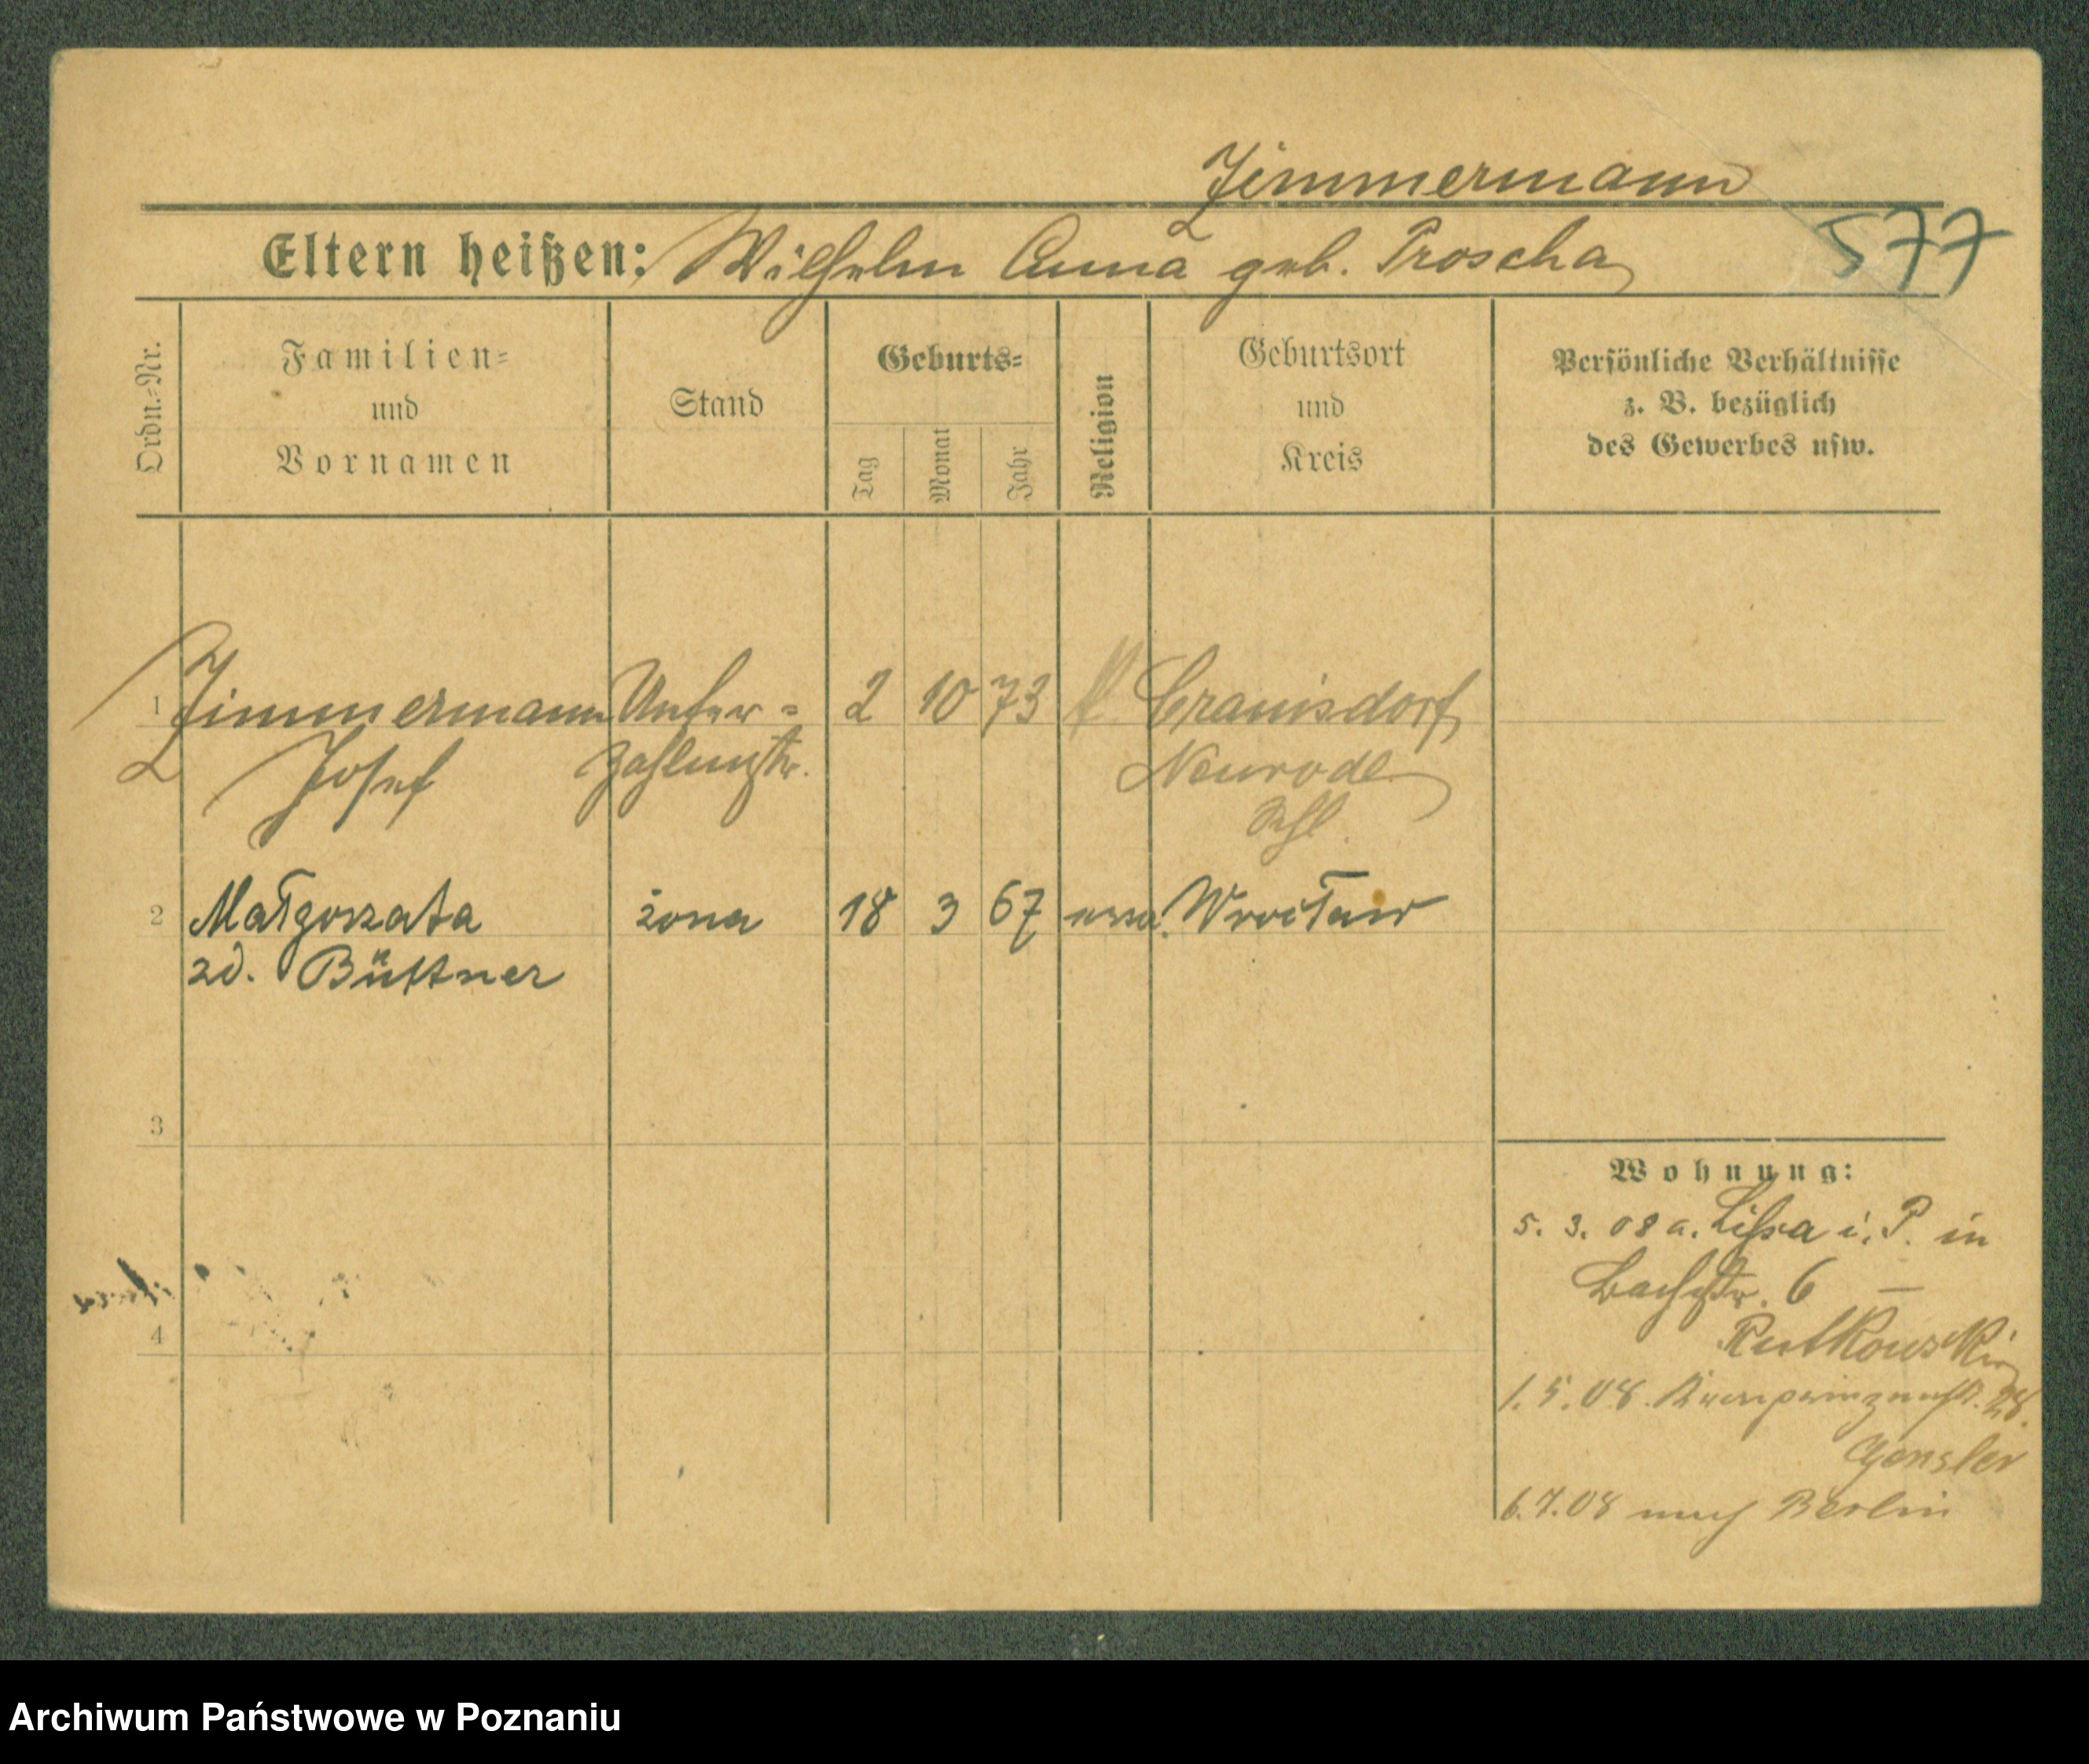 Zimmermann
Eltern heißen: Wilhelm Anna geb. Proscha
577
Ordn.-Nr.
Familien-
und
Vornamen
Stand
Geburts-
Tag
Monat
Jahr
Religion
Geburtsort
und
Kreis
Persönliche Verhältnisse
z. B. bezüglich
des Gewerbes usw.
1 Zimmermann Unter- 2 10 73 k. Crainsdorf
Josef Zahlmstr. Neurode
Schl
2 Małgorzata żona 18 3 67 Wrocław
zd. Büttner
3
4
Wohnung:
5. 3. 08 a. Lissa i. P. in
Bachstr. 6 –
Rutkowski
1. 5. 08. Kronprinzenstr. 28.
Gensler
6.7.08 nach Berlin
Archiwum Państwowe w Poznaniu